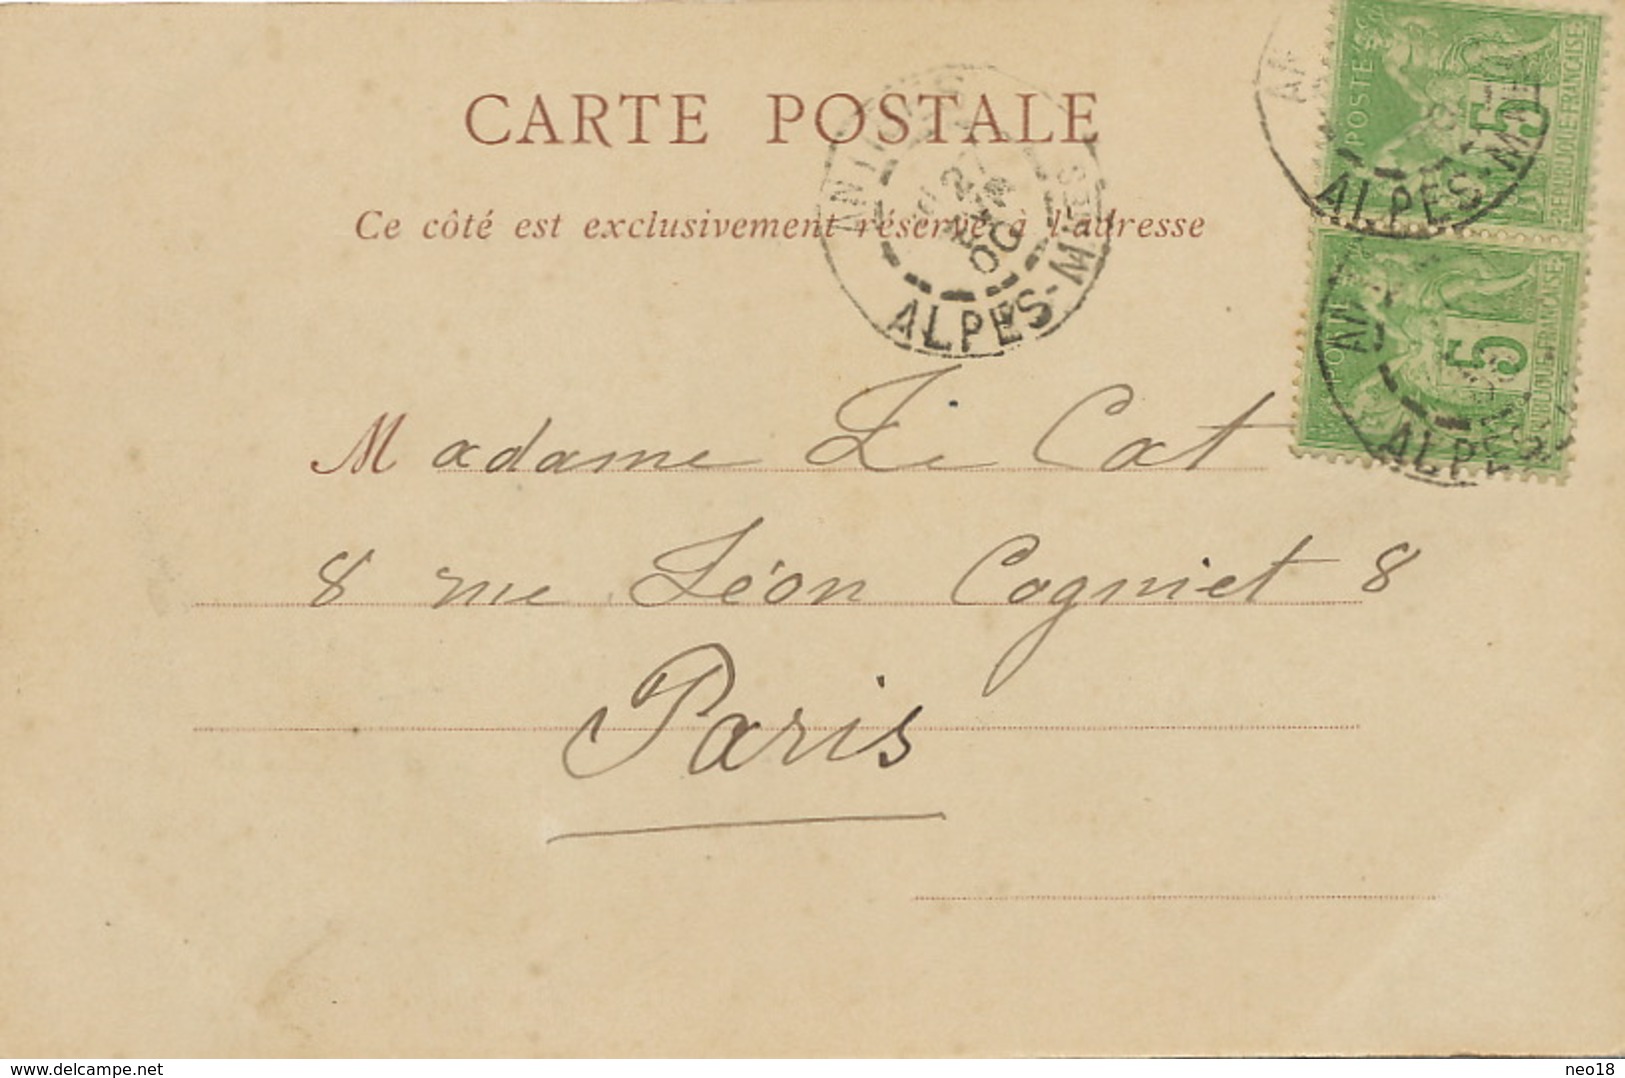 CARTE POSTALE
Ce côté est exclusivement réservé à l'adresse
ALPES-MMES
POSTES
5
REPUBLIQUE FRANÇAISE
ALPES-M
5
REPUBLIQUE FRANÇAISE
ALPES
Madame Le Cat
8 rue Léon Cogniet 8
Paris
www.delcampe.net
neo18